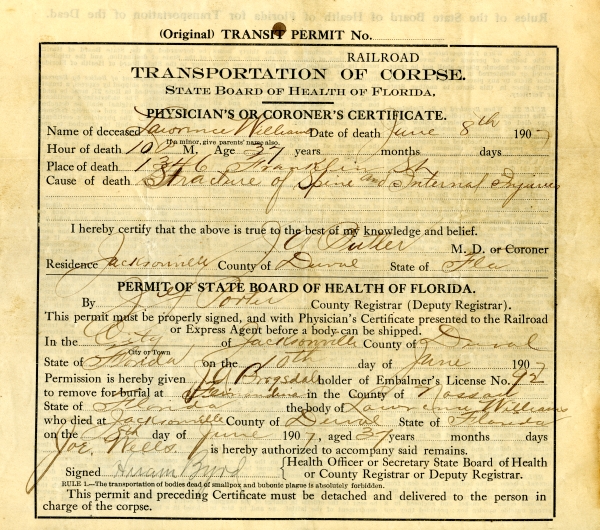 (Original) TRANSIT PERMIT No.
RAILROAD
TRANSPORTATION OF CORPSE.
STATE BOARD OF HEALTH OF FLORIDA.
PHYSICIAN'S OR CORONER'S CERTIFICATE.
Name of deceased Lawrence Williams Date of death June 8th 1907
(If a minor, give parents' name also.)
Hour of death 10 M. Age 37 years months days
Place of death 1346 Franklin St
Cause of death Fracture of Spine and Internal Injuries
I hereby certify that the above is true to the best of my knowledge and belief.
M. D. or Coroner
Residence Jacksonville County of Duval State of Fla
PERMIT OF STATE BOARD OF HEALTH OF FLORIDA.
By J Y Porter County Registrar (Deputy Registrar).
This permit must be properly signed, and with Physician's Certificate presented to the Railroad
or Express Agent before a body can be shipped.
In the City of Jacksonville County of Duval
City or Town
State of Florida on the 10th day of June 1907
Permission is hereby given holder of Embalmer's License No. 92
to remove for burial at Fernandina in the County of Nassau
State of Florida the body of Lawrence Williams
who died at Jacksonville County of Duval State of Florida
on the 8th day of June 1907, aged 37 years months days
Joe. Wells. is hereby authorized to accompany said remains.
Signed Hiram Byrd {Health Officer or Secretary State Board of Health
or County Registrar or Deputy Registrar.
RULE 1.—The transportation of bodies dead of smallpox and bubonic plague is absolutely forbidden.
This permit and preceding Certificate must be detached and delivered to the person in
charge of the corpse.